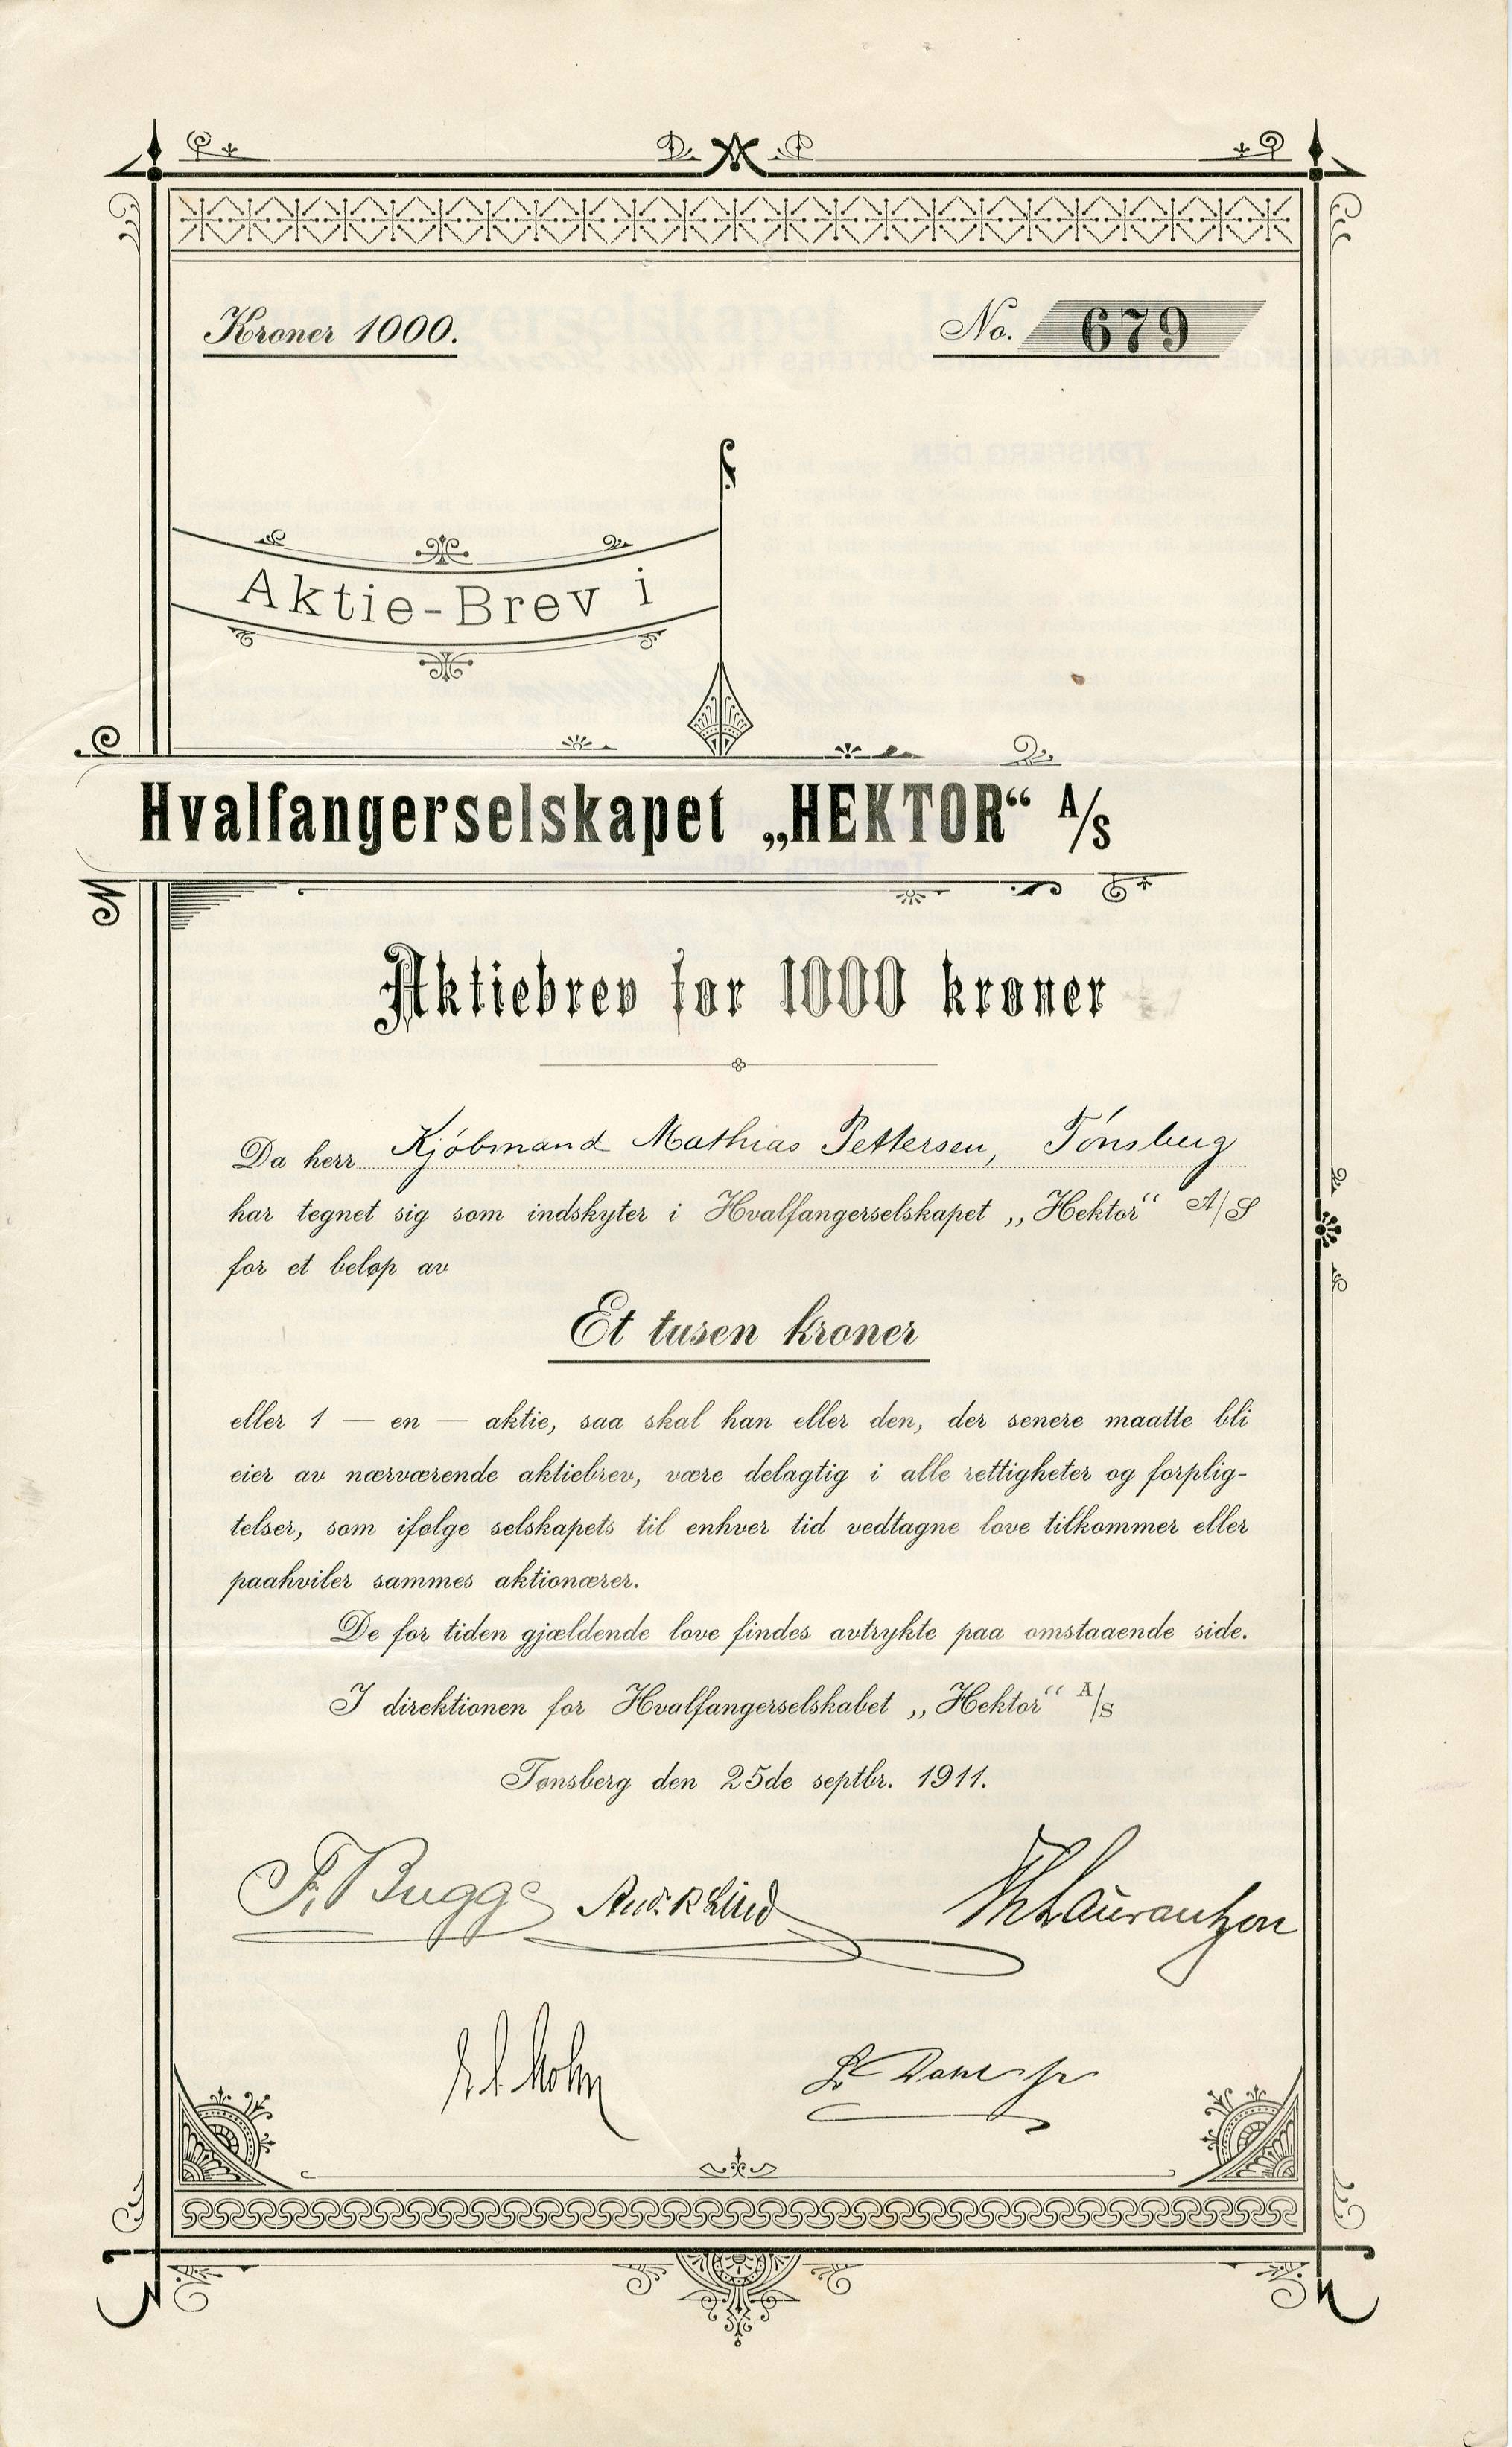 Kroner 1000.
No. 679
Aktie-Brev i
Hvalfangerselskapet „HEKTOR“ A/S
Aktiebrev for 1000 kroner
Da herr Kjöbmand Mathias Pettersen, Tönsberg
har tegnet sig som indskyter i Hvalfangerselskapet „Hektor“ A/S
for et beløp av
Et tusen kroner
eller 1 — en — aktie, saa skal han eller den, der senere maatte bli
eier av nærværende aktiebrev, være delagtig i alle rettigheter og forplig-
telser, som ifølge selskapets til enhver tid vedtagne love tilkommer eller
paahviler sammes aktionærer.
De for tiden gjældende love findes avtrykte paa omstaaende side.
I direktionen for Hvalfangerselskabet „Hektor“ A/S
Tønsberg den 25de septbr. 1911.
F. Bugge
N. Bugge